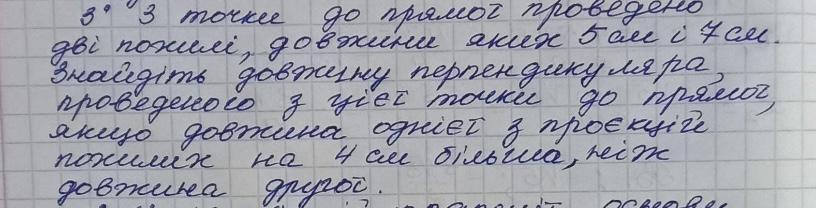 3° З точки до прямої проведено
дві похилі, довжини яких 5 см і 7 см.
Знайдіть довжину перпендикуляра,
проведеного з цієї точки до прямої,
якщо довжина однієї з проєкцій
похилих на 4 см більша, ніж
довжина другої.
основи